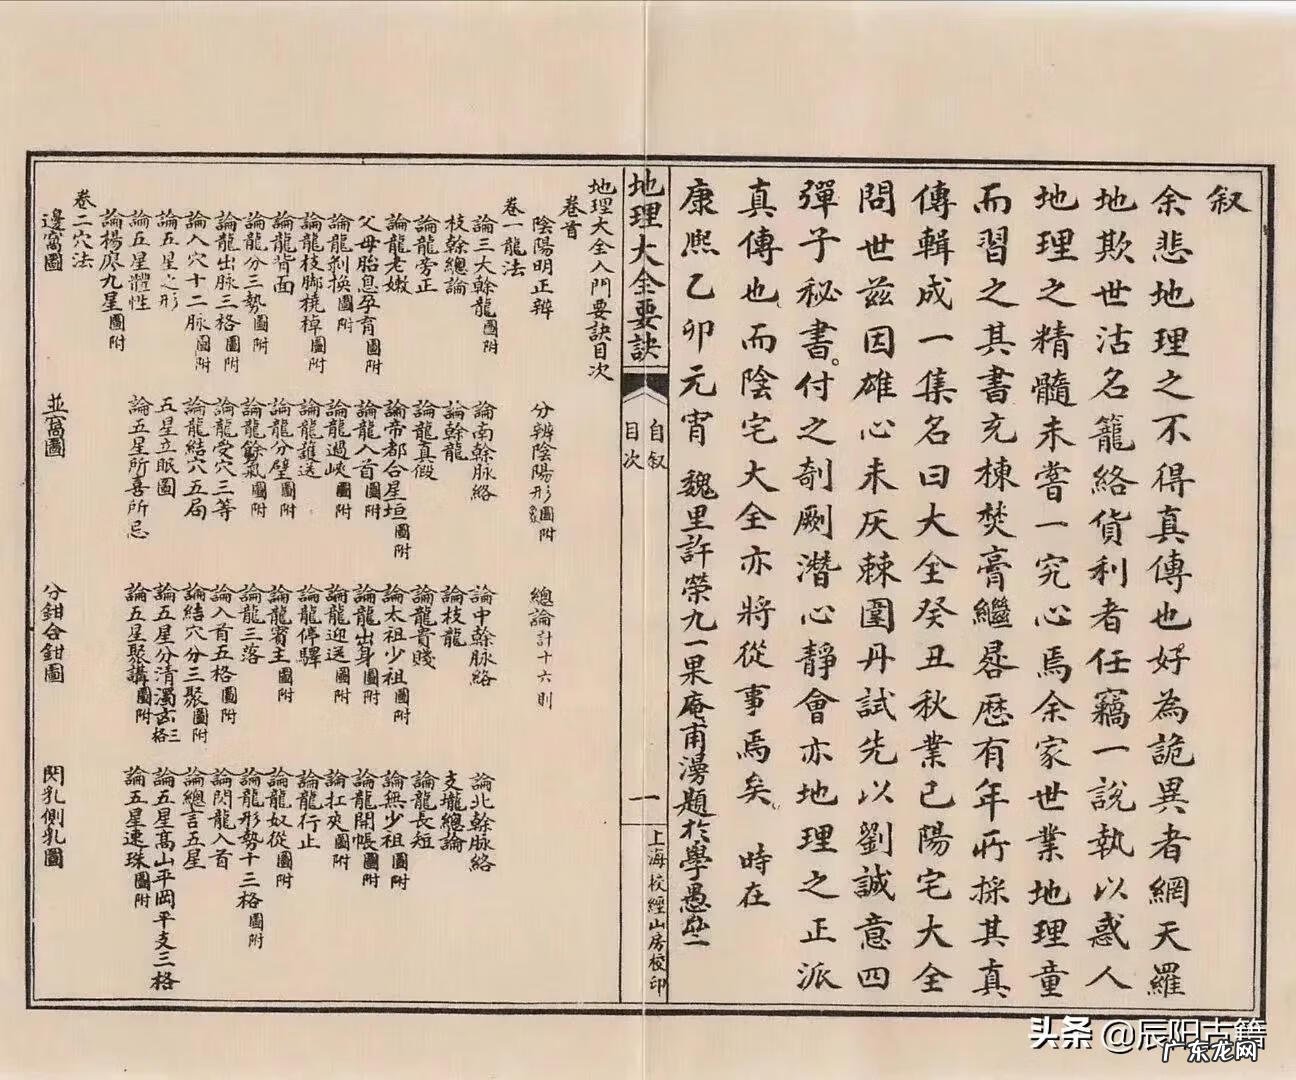 叙
余悲地理之不得真傳也好為詭異者網天羅
地欺世沽名籠絡貨利者任竊一說執以惑人
地理之精髓未嘗一究心焉余家世業地理童
而習之其書充棟焚膏繼晷歷有年所採其真
傳輯成一集名曰大全癸丑秋業已陽宅大全
問世茲因雄心未灰棘圍丹試先以劉誠意四
彈子秘書。付之剞劂潛心靜會亦地理之正派
真傳也而陰宅大全亦將從事焉矣 時在
康熙乙卯元宵 魏里許榮九一果庵甫漫題於學愚
地理大全要訣
自叙
目次
一
上海校經山房校印
地理大全入門要訣目次
卷首
陰陽明正辨 分辨陰陽形圖附 總論計十六則
卷一龍法
論三大榦龍圖附 論南榦脉絡 論中榦脉絡 論北榦脉絡
枝榦總論 論榦龍 論枝龍 支壠總論
論龍旁正 論龍真假 論龍貴賤 論龍長短
論龍老嫩 論帝都合星垣圖附 論太祖少祖圖附 論無少祖圖附
父母胎息孕育圖附 論龍入首圖附 論龍出身圖附 論龍開帳圖附
論龍剝換圖附 論龍過峽圖附 論龍迎送圖附 論扛夾圖附
論龍枝脚橈棹圖附 論龍護送 論龍停驛 論龍行止
論龍背面 論龍分壁圖附 論龍賓主圖附 論龍奴從圖附
論龍分三勢圖附 論龍餘氣圖附 論龍三落 論龍形勢十三格圖附
論龍出脉三格圖附 論龍受穴三等 論入首五格圖附 論閃龍入首
論入穴十二脉圖附 論龍結穴五局 論結穴分三聚圖附 論總言五星
論五星之形 五星立眠圖 論五星分清濁三格 論五星高山平岡平支三格
論五星體性 論五星所喜所忌 論五星聚講圖附 論五星連珠圖附
論楊廖九星圖附
卷二穴法
邊窩圖 並窩圖 分鉗合鉗圖 閃乳側乳圖
头条 @辰阳古籍
广东龙网